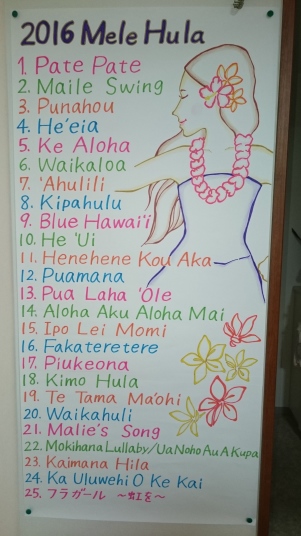 2016 Mele Hula
1. Pate Pate
2. Maile Swing
3. Punahou
4. He'eia
5. Ke Aloha
6. Waikaloa
7. 'Ahulili
8. Kipahulu
9. Blue Hawai'i
10. He 'Ui
11. Henehene Kou Aka
12. Puamana
13. Pua Laha 'Ole
14. Aloha Aku Aloha Mai
15. Ipo Lei Momi
16. Fakateretere
17. Piukeona
18. Kimo Hula
19. Te Tama Ma'ohi
20. Waikahuli
21. Malie's Song
22. Mokihana Lullaby/Ua Noho Au A Kupa
23. Kaimana Hila
24. Ka Uluwehi O Ke Kai
25. フラガール ～虹を～